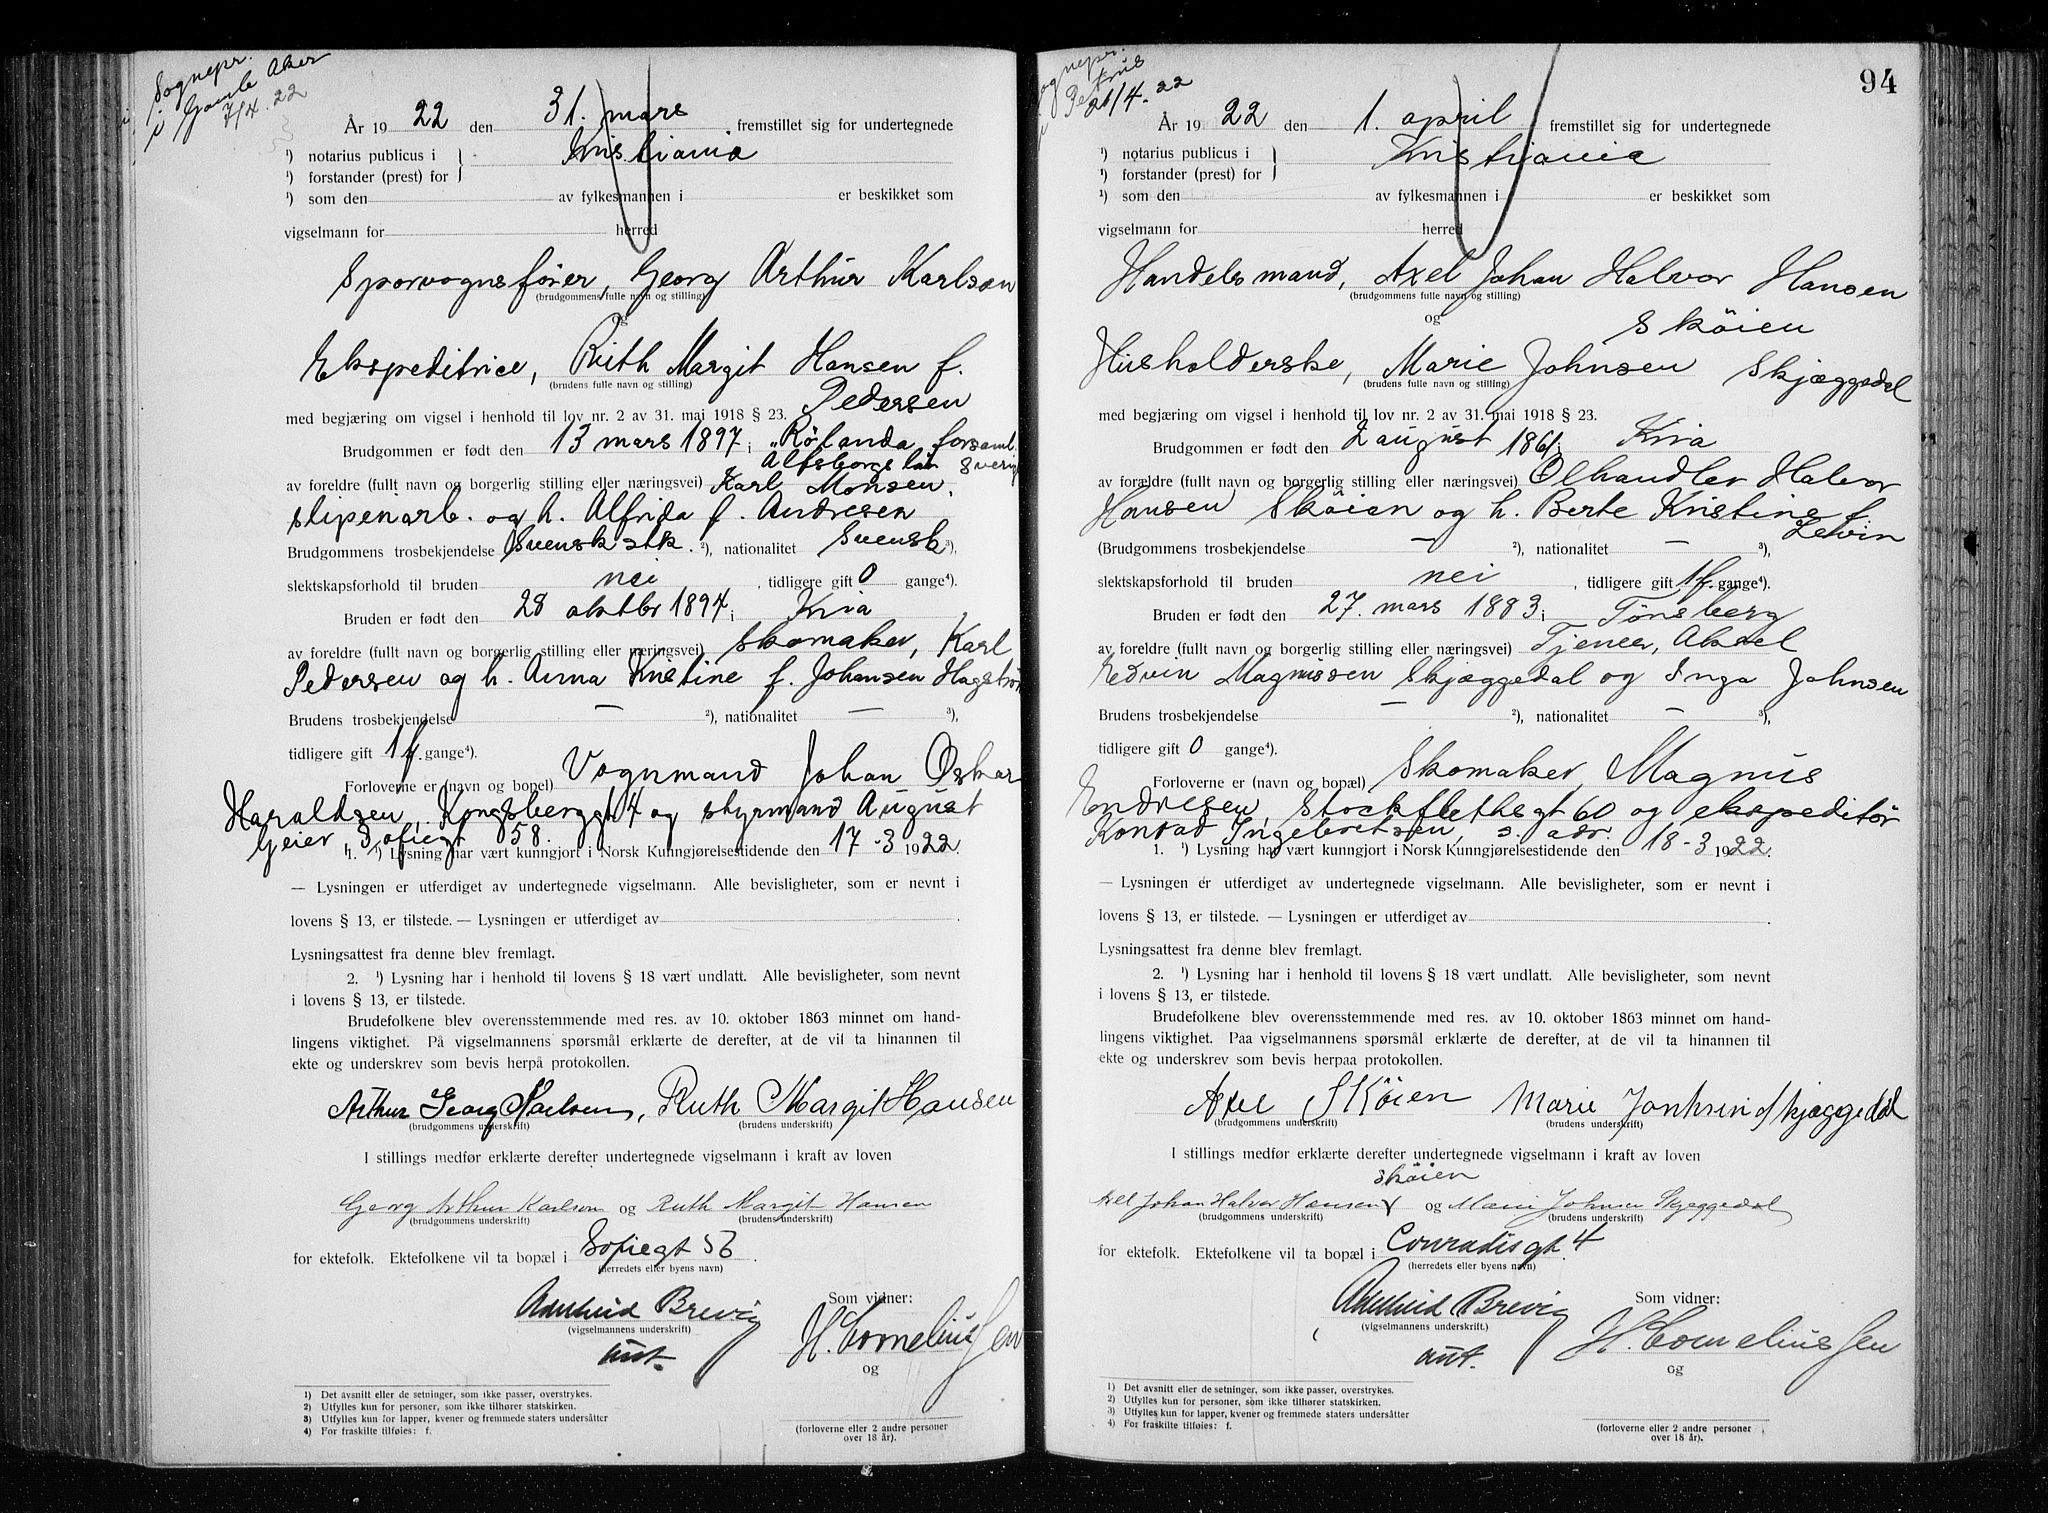 Sognepr.
i Gamle Aker
7/4.22
År 1922 den 31. mars fremstillet sig for undertegnede
¹) notarius publicus i } Kristiania
¹) forstander (prest) for
¹) som den av fylkesmannen i er beskikket som
vigselmann for herred
Sporvognsfører, Georg Arthur Karlson
(brudgommens fulle navn og stilling)
og
Ekspeditrice, Ruth Margit Hansen f.
(brudens fulle navn og stilling)
Pedersen
med begjæring om vigsel i henhold til lov nr. 2 av 31. mai 1918 § 23.
Brudgommen er født den 13 mars 1897 i Rölanda forsaml.
Alfsborgs län Sverig
av foreldre (fullt navn og borgerlig stilling eller næringsvei) Karl Monsen,
slipenarb. og h. Alfrida f. Andresen
Brudgommens trosbekjendelse Svensk stk. ²), nationalitet Svensk ³),
slektskapsforhold til bruden nei, tidligere gift 0 gange⁴).
Bruden er født den 28 oktbr 1894 i Kria
av foreldre (fullt navn og borgerlig stilling eller næringsvei) Skomaker, Karl
Pedersen og h. Anna Kristine f. Johansen
Brudens trosbekjendelse — ²), nationalitet — ³),
tidligere gift 1 f. gange⁴).
Forloverne er (navn og bopel) Vognmand Johan Oskar
Haraldsen, Kongsberggt 4 og styrmand August
Geier Sofiegt 58.
1. ¹) Lysning har vært kunngjort i Norsk Kunngjørelsestidende den 17-3 1922.
— Lysningen er utferdiget av undertegnede vigselmann. Alle bevisligheter, som er nevnt i
lovens § 13, er tilstede. — Lysningen er utferdiget av .
Lysningsattest fra denne blev fremlagt.
2. ¹) Lysning har i henhold til lovens § 18 vært undlatt. Alle bevisligheter, som nevnt
i lovens § 13, er tilstede.
Brudefolkene blev overensstemmende med res. av 10. oktober 1863 minnet om hand-
lingens viktighet. På vigselmannens spørsmål erklærte de derefter, at de vil ta hinannen til
ekte og underskrev som bevis herpå protokollen.
Arthur Georg Karlson, Ruth Margit Hansen
(brudgommens underskrift) (brudens underskrift)
I stillings medfør erklærte derefter undertegnede vigselmann i kraft av loven
Georg Arthur Karlson og Ruth Margit Hansen
(brudgommens underskrift) (brudens underskrift)
for ektefolk. Ektefolkene vil ta bopæl i Sofiegt 56.
(herredets eller byens navn)
Som vidner:
Adelheid Brevig H. Corneliussen
(vigselmannens underskrift)
aut.
og
¹) Det avsnitt eller de setninger, som ikke passer, overstrykes.
²) Utfylles kun for personer, som ikke tilhører statskirken.
³) Utfylles kun for lapper, kvener og fremmede staters undersåtter
⁴) For fraskilte tilføies: f.
(forloverne eller 2 andre personer
over 18 år).
94
Sognepr.
i Petrus
21/4.22
År 1922 den 1. april fremstillet sig for undertegnede
¹) notarius publicus i } Kristiania
¹) forstander (prest) for
¹) som den av fylkesmannen i er beskikket som
vigselmann for herred
Handelsmand, Axel Johan Halvor Hansen
(brudgommens fulle navn og stilling)
og Sköien
Husholderske, Marie Johnsen Skjæggedal
(brudens fulle navn og stilling)
med begjæring om vigsel i henhold til lov nr. 2 av 31. mai 1918 § 23.
Brudgommen er født den 2 august 1861 i Kria
av forældre (fullt navn og borgerlig stilling eller næringsvei) Ølhandler Halvor
Hansen Sköien og h. Berte Kristine f.
Lelvin
(Brudgommens trosbekjendelse — ²), nationalitet — ³),
slektskapsforhold til bruden nei, tidligere gift 1 f. gange⁴).
Bruden er født den 27. mars 1883 i Tønsberg
av foreldre (fullt navn og borgerlig stilling eller næringsvei) Tjener, Aksel
Edvin Magnussen Skjæggedal og Inga Johnsen
Brudens trosbekjendelse — ²), nationalitet — ³),
tidligere gift 0 gange⁴).
Forloverne er (navn og bopæl) Skomaker Magnus
Endresen, Stockflethsgt 60 og ekspeditør
Konrad Ingebretsen, s. adr.
1. ¹) Lysning har vært kunngjort i Norsk Kunngjørelsestidende den 18-3 1922.
— Lysningen er utferdiget av undertegnede vigselmann. Alle bevisligheter, som er nevnt i
lovens § 13, er tilstede. — Lysningen er utferdiget av .
Lysningsattest fra denne blev fremlagt.
2. ¹) Lysning har i henhold til lovens § 18 vært undlatt. Alle bevisligheter, som nevnt
i lovens § 13, er tilstede.
Brudefolkene blev overensstemmende med res. av 10. oktober 1863 minnet om hand-
lingens viktighet. Paa vigselmannens spørsmål erklærte de derefter, at de vil ta hinannen til
ekte og underskrev som bevis herpaa protokollen.
Axel Sköien Marie Jonhsen Skjæggedal
(brudgommens underskrift) (brudens underskrift)
I stillings medfør erklærte derefter undertegnede vigselmann i kraft av loven
Sköien
Axel Johan Halvor Hansen og Marie Johnsen Skjeggedal
(brudgommens underskrift) (brudens underskrift)
for ektefolk. Ektefolkene vil ta bopæl i Conradisgt. 4
(herredets eller byens navn)
Som vidner:
Adelheid Brevig H. Corneliussen
(vigselmannens underskrift.)
aut.
og
¹) Det avsnitt eller de setninger, som ikke passer, overstrykes.
²) Utfylles kun for personer, som ikke tilhører statskirken.
³) Utfylles kun for lapper, kvener og fremmede staters undersåtter
⁴) For fraskilte tilføies: f.
(forloverne eller 2 andre personer
over 18 år).